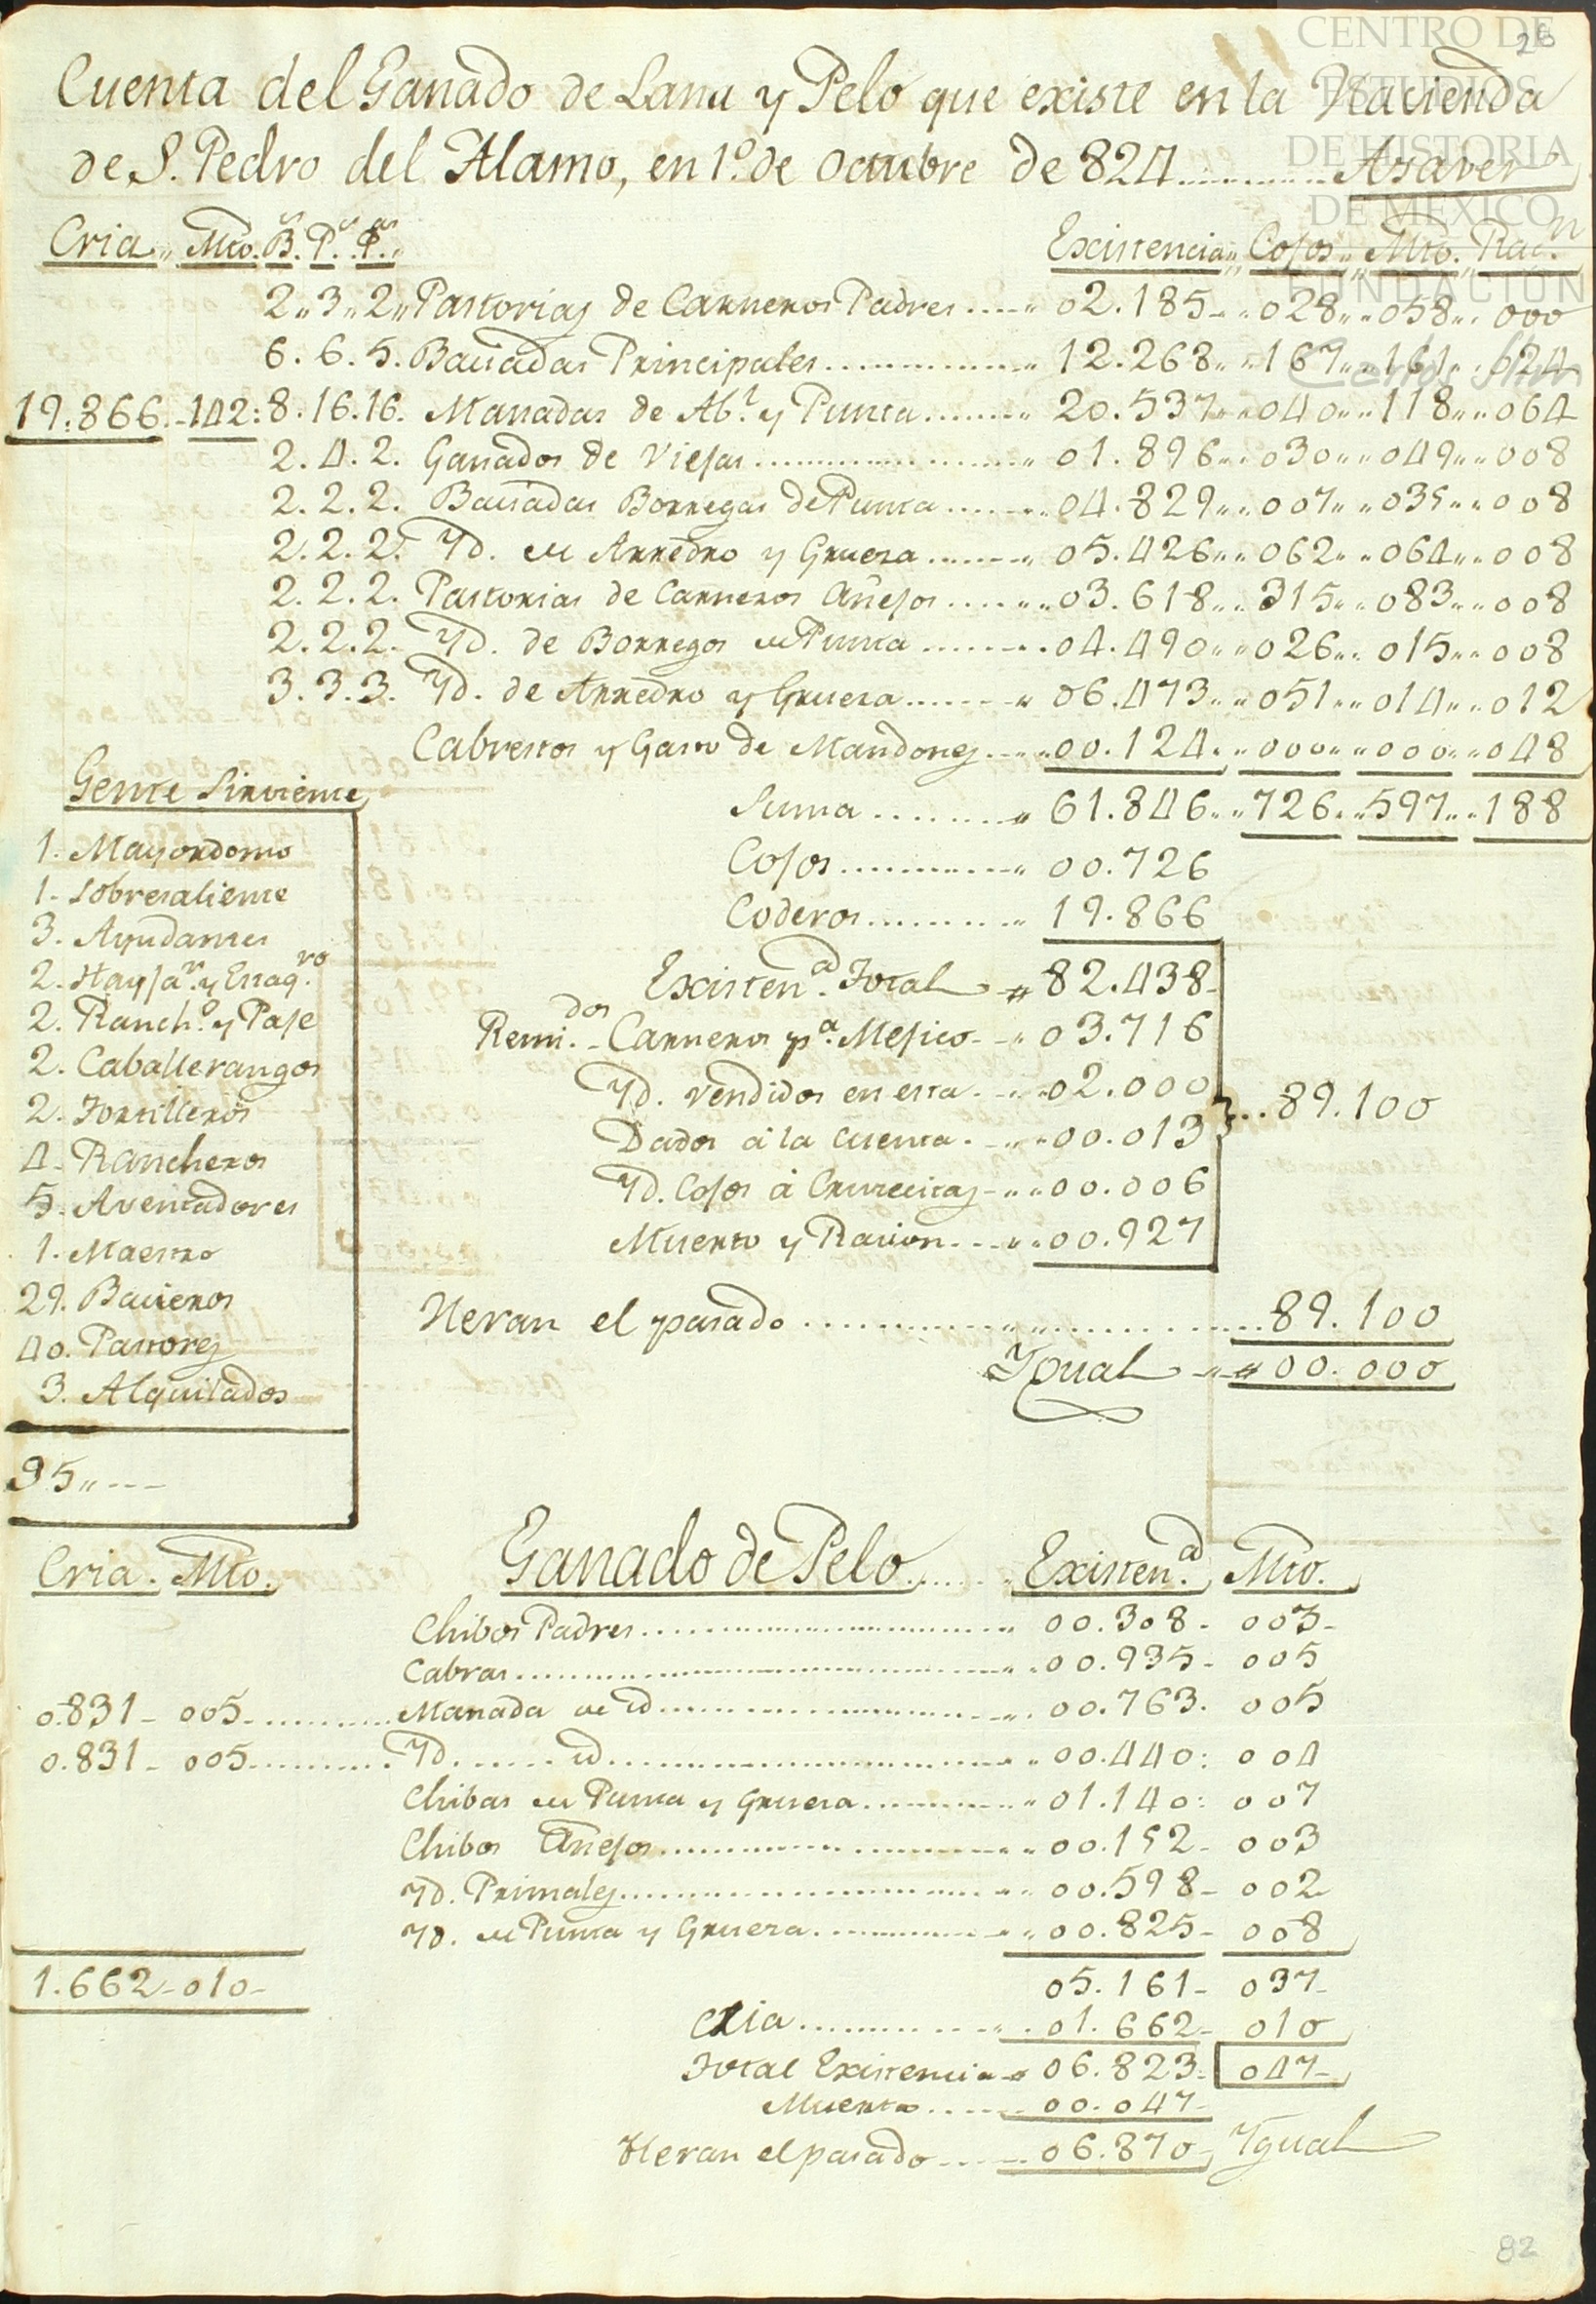 26
CENTRO DE
ESTUDIOS
DE HISTORIA
DE MEXICO
FUNDACIÓN
Carlos Slim
Cuenta del Ganado de Lana y Pelo que existe en la Hacienda
de S. Pedro del Alamo, en 1º. de Octubre de 824 ........ Asaver
Cria,, Mto. B.s P.s P.as,, Existencia,, Cojos,, Mto. Rac.n
2,,3,,2,, Pastorias de Carneros Padres ..... 02.185 028 058 000
6. 6. 5. Baciadas Principales ..... 12.268 167 161 024
19.866. 142: 8. 16. 16. Manadas de Ab.l y Punta ..... 20.537 040 118 064
2. 4. 2. Ganados de Viejas ..... 01.896 030 049 008
2. 2. 2. Baciadas Borregas de Punta ..... 04.829 007 035 008
2. 2. 2. Yd. de Arredro y Gruesa ..... 05.426 062 064 008
2. 2. 2. Pastorias de Carneros Añejos ..... 03.618 315 083 008
2. 2. 2. Yd. de Borregos de Punta ..... 04.490 026 015 008
3. 3. 3. Yd. de Arredro y Gruesa ..... 06.473 051 014 012
Cabrestos y Gasto de Mandones ..... 00.124 000 000 048
Suma ..... 61.846 726 597 188
Cojos ..... 00.726
Coderos ..... 19.866
Existen.a Total 82.438
Remi.dos Carneros p.a Mejico 03.716
Yd. vendidos en esta 02.000
Dados á la cuenta 00.013
Yd. Cojos á Crucecitas 00.006
Muerto y Racion 00.927
} ... 89.100
Heran el pasado ..... 89.100
Ygual 00.000
Gente Sirviente
1. Mayordomo
1. Sobresaliente
3. Ayudantes
2. Ranch.o y Paje
2. Caballerangos
2. Tortilleros
4. Rancheros
5. Aventadores
1. Maestro
29. Bacieros
40. Pastores
3. Alquilados
95,,---
Cria. Mto. Ganado de Pelo ..... Existen.a Mto.
Chibos Padres ..... 00.308 003
Cabras ..... 00.935 005
0.831 005 ..... Manada de id ..... 00.763 005
0.831 005 ..... Yd. ..... id ..... 00.440 004
Chibas de Punta y Gruesa ..... 01.140 007
Chibos Añejos ..... 00.152 003
Yd. Primales ..... 00.598 002
Yd. de Punta y Gruesa ..... 00.825 008
1.662 010 05.161 037
Cria ..... 01.662 010
Total Existencia 06.823 047
Muerto ..... 00.047
Heran el pasado ..... 06.870 Ygual
82